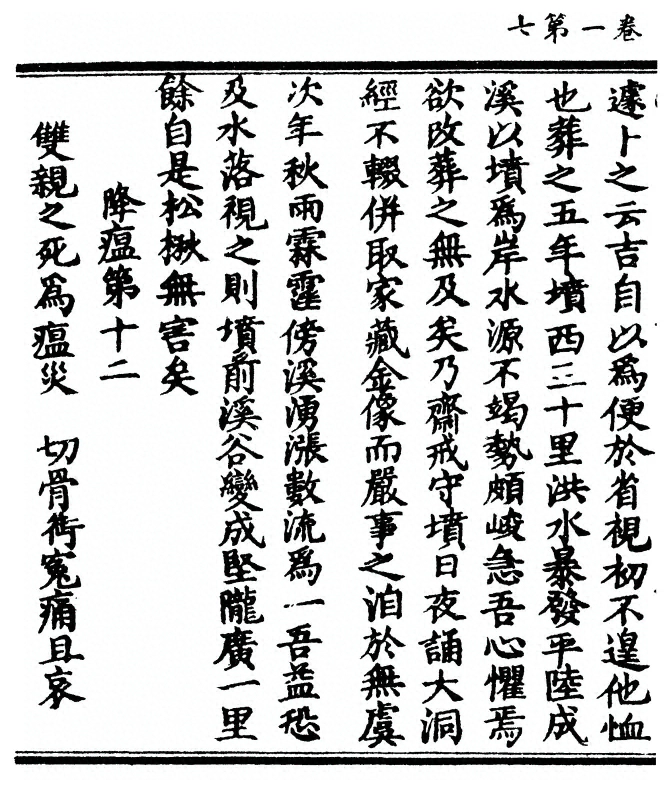 卷一第七
遽卜之云吉自以為便於省視初不遑他恤
也葬之五年墳西三十里洪水暴發平陸成
溪以墳為岸水源不竭勢頗峻急吾心懼焉
欲改葬之無及矣乃齋戒守墳日夜誦大洞
經不輟併取家藏金像而嚴事之洎於無虞
次年秋雨霖霪傍溪湧漲數流為一吾益恐
及水落視之則墳前溪谷變成堅隴廣一里
餘自是松楸無害矣
降瘟第十二
雙親之死為瘟災　切骨銜冤痛且哀